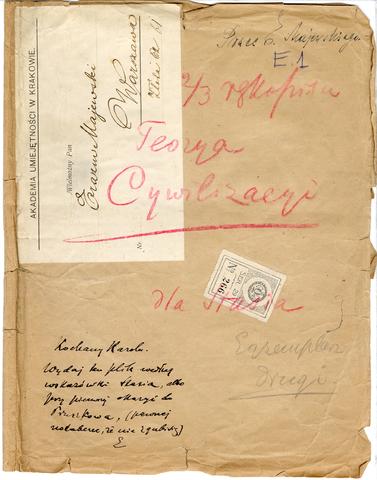 Prace E. Majewskiego
E.1
AKADEMIA UMIEJĘTNOŚCI W KRAKOWIE.
Wielmożny Pan
Erazm Majewski
Warszawa
Złota 61
Nr.
2/3 rękopisu
Teorya
Cywilizacyi
SER. 25
№ 266
dla Stasia
Egzemplarz
Drugi
Kochany Karolu.
Wydaj tu plik według
wskazówki Stasia, albo
przy pierwszej okazyi do
Pruszkowa, (pewnej
notabene, że nie zgubisz)
E